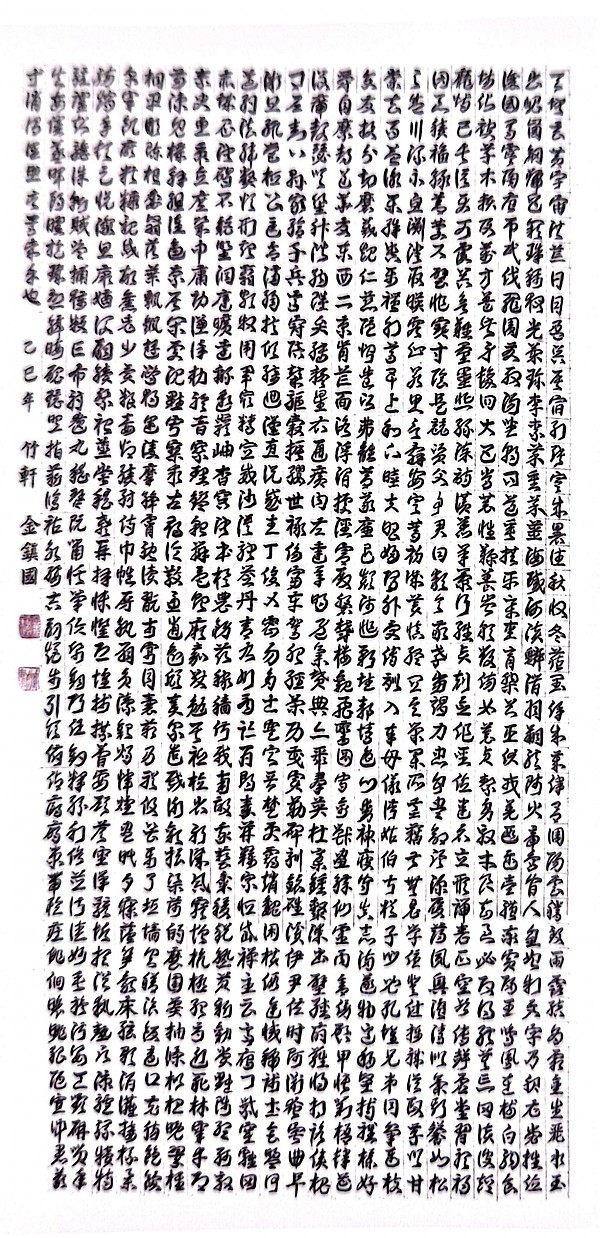 天地玄黃宇宙洪荒日月盈昃辰宿列張寒來暑往秋收冬藏閏餘成歲律呂調陽雲騰致雨露結爲霜金生麗水玉
出崑岡劍號巨闕珠稱夜光菓珍李柰菜重芥薑海鹹河淡鱗潛羽翔龍師火帝鳥官人皇始制文字乃服衣裳推位
讓國有虞陶唐弔民伐罪周發殷湯坐朝問道垂拱平章愛育黎首臣伏戎羌遐邇壹體率賓歸王鳴鳳在樹白駒食
場化被草木賴及萬方蓋此身髮四大五常恭惟鞠養豈敢毀傷女慕貞烈男效才良知過必改得能莫忘罔談彼短
靡恃己長信使可覆器欲難量墨悲絲染詩讚羔羊景行維賢克念作聖德建名立形端表正空谷傳聲虛堂習聽禍
因惡積福緣善慶尺璧非寶寸陰是競資父事君曰嚴與敬孝當竭力忠則盡命臨深履薄夙興溫凊似蘭斯馨如松
之盛川流不息淵澄取映容止若思言辭安定篤初誠美愼終宜令榮業所基籍甚無竟學優登仕攝職從政存以甘
棠去而益詠樂殊貴賤禮別尊卑上和下睦夫唱婦隨外受傅訓入奉母儀諸姑伯叔猶子比兒孔懷兄弟同氣連枝
交友投分切磨箴規仁慈隱惻造次弗離節義廉退顚沛匪虧性靜情逸心動神疲守眞志滿逐物意移堅持雅操好
爵自縻都邑華夏東西二京背邙面洛浮渭據涇宮殿盤鬱樓觀飛驚圖寫禽獸畫綵仙靈丙舍傍啓甲帳對楹肆筵
設席鼓瑟吹笙陞階納陛弁轉疑星右通廣內左達承明旣集墳典亦聚群英杜稿鍾隸漆書壁經府羅將相路俠槐
卿戶封八縣家給千兵高冠陪輦驅轂振纓世祿侈富車駕肥輕策功茂實勒碑刻銘磻溪伊尹佐時阿衡奄宅曲阜
微旦孰營桓公匡合濟弱扶傾綺回漢惠說感武丁俊乂密勿多士寔寧晉楚更霸趙魏困橫假途滅虢踐土會盟何
遵約法韓弊煩刑起翦頗牧用軍最精宣威沙漠馳譽丹靑九州禹跡百郡秦幷嶽宗恒岱禪主云亭雁門紫塞雞田
赤城昆池碣石鉅野洞庭曠遠綿邈巖岫杳冥治本於農務茲稼穡俶載南畝我藝黍稷稅熟貢新勸賞黜陟孟軻敦
素史魚秉直庶幾中庸勞謙謹勅聆音察理鑑貌辨色貽厥嘉猷勉其祗植省躬譏誡寵增抗極殆辱近恥林皐幸卽
兩疏見機解組誰逼索居閑處沈默寂寥求古尋論散慮逍遙欣奏累遣慼謝歡招渠荷的歷園莽抽條枇杷晩翠梧
桐早凋陳根委翳落葉飄颻遊鵾獨運凌摩絳霄耽讀翫市寓目囊箱易輶攸畏屬耳垣墻具膳飱飯適口充腸飽飫
烹宰飢厭糟糠親戚故舊老少異糧妾御績紡侍巾帷房紈扇圓潔銀燭煒煌晝眠夕寐藍筍象床絃歌酒讌接杯擧
觴矯手頓足悅豫且康嫡後嗣續祭祀蒸嘗稽顙再拜悚懼恐惶牋牒簡要顧答審詳骸垢想浴執熱願凉驢騾犢特
駭躍超驤誅斬賊盜捕獲叛亡布射僚丸嵇琴阮嘯恬筆倫紙鈞巧任釣釋紛利俗竝皆佳妙毛施淑姿工顰姸笑年
矢每催羲暉朗曜璇璣懸斡晦魄環照指薪修祜永綏吉劭矩步引領俯仰廊廟束帶矜莊徘徊瞻眺孤陋寡聞愚蒙
等誚謂語助者焉哉乎也 乙巳年 竹軒 金鎭國